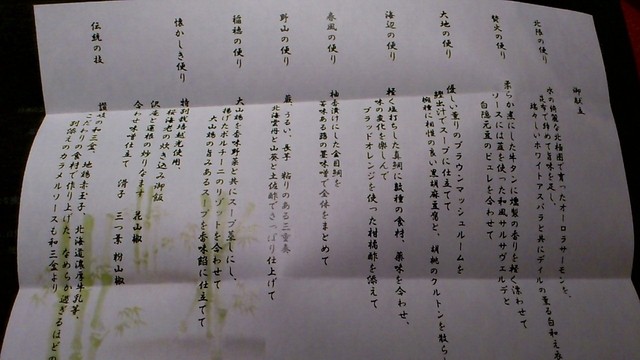 御献立
北極の便り
氷の綺麗な北極圏で育ったオーロラサーモンを、
昆布で締めて旨味を足し、
瑞々しいホワイトアスパラと共にディルの薫る白和え
焚火の便り
柔らか煮にした牛タンに燻製の香りを軽く漂わせて
ソースには蕗を使った和風サルサヴェルデと
白隠元豆のピュレを合わせて
大地の便り
優しい薫りのブラウンマッシュルームを
鰹出汁でスープに仕立てて
椀種に相性の良い黒胡麻豆腐と、胡桃のクルトンを散ら
海辺の便り
軽く塩打ちした真鯛に数種の食材、薬味を合わせ、
味の変化を楽しんで
ブラッドオレンジを使った柑橘酢を添えて
春風の便り
柚香漬けにした金目鯛を
苦味ある蕗の薹味噌で全体をまとめて
野山の便り
蕨、うるい、長芋 粘りのある三重奏
北海雲丹と山葵と土佐酢でさっぱり仕上げて
稲穂の便り
大山鶏を香味野菜と共にスープ蒸しにし、
揚げたカルナローニのリゾットを合わせて
大山鶏の旨味あるスープを香味餡に仕立てて
懐かしき便り
特別栽培越光使用、
桜海老の炊き込み御飯
沢庵と蓮根の炒りなます 昆山椒
合わせ味噌仕立て 滑子 三つ葉 粉山椒
伝統の技
讃岐の和三盆、地鶏赤玉子、北海道濃厚牛乳等、
こだわりの食材で作り上げた、なめらか過ぎるほどの
別添えのカラメルソースも和三盆より